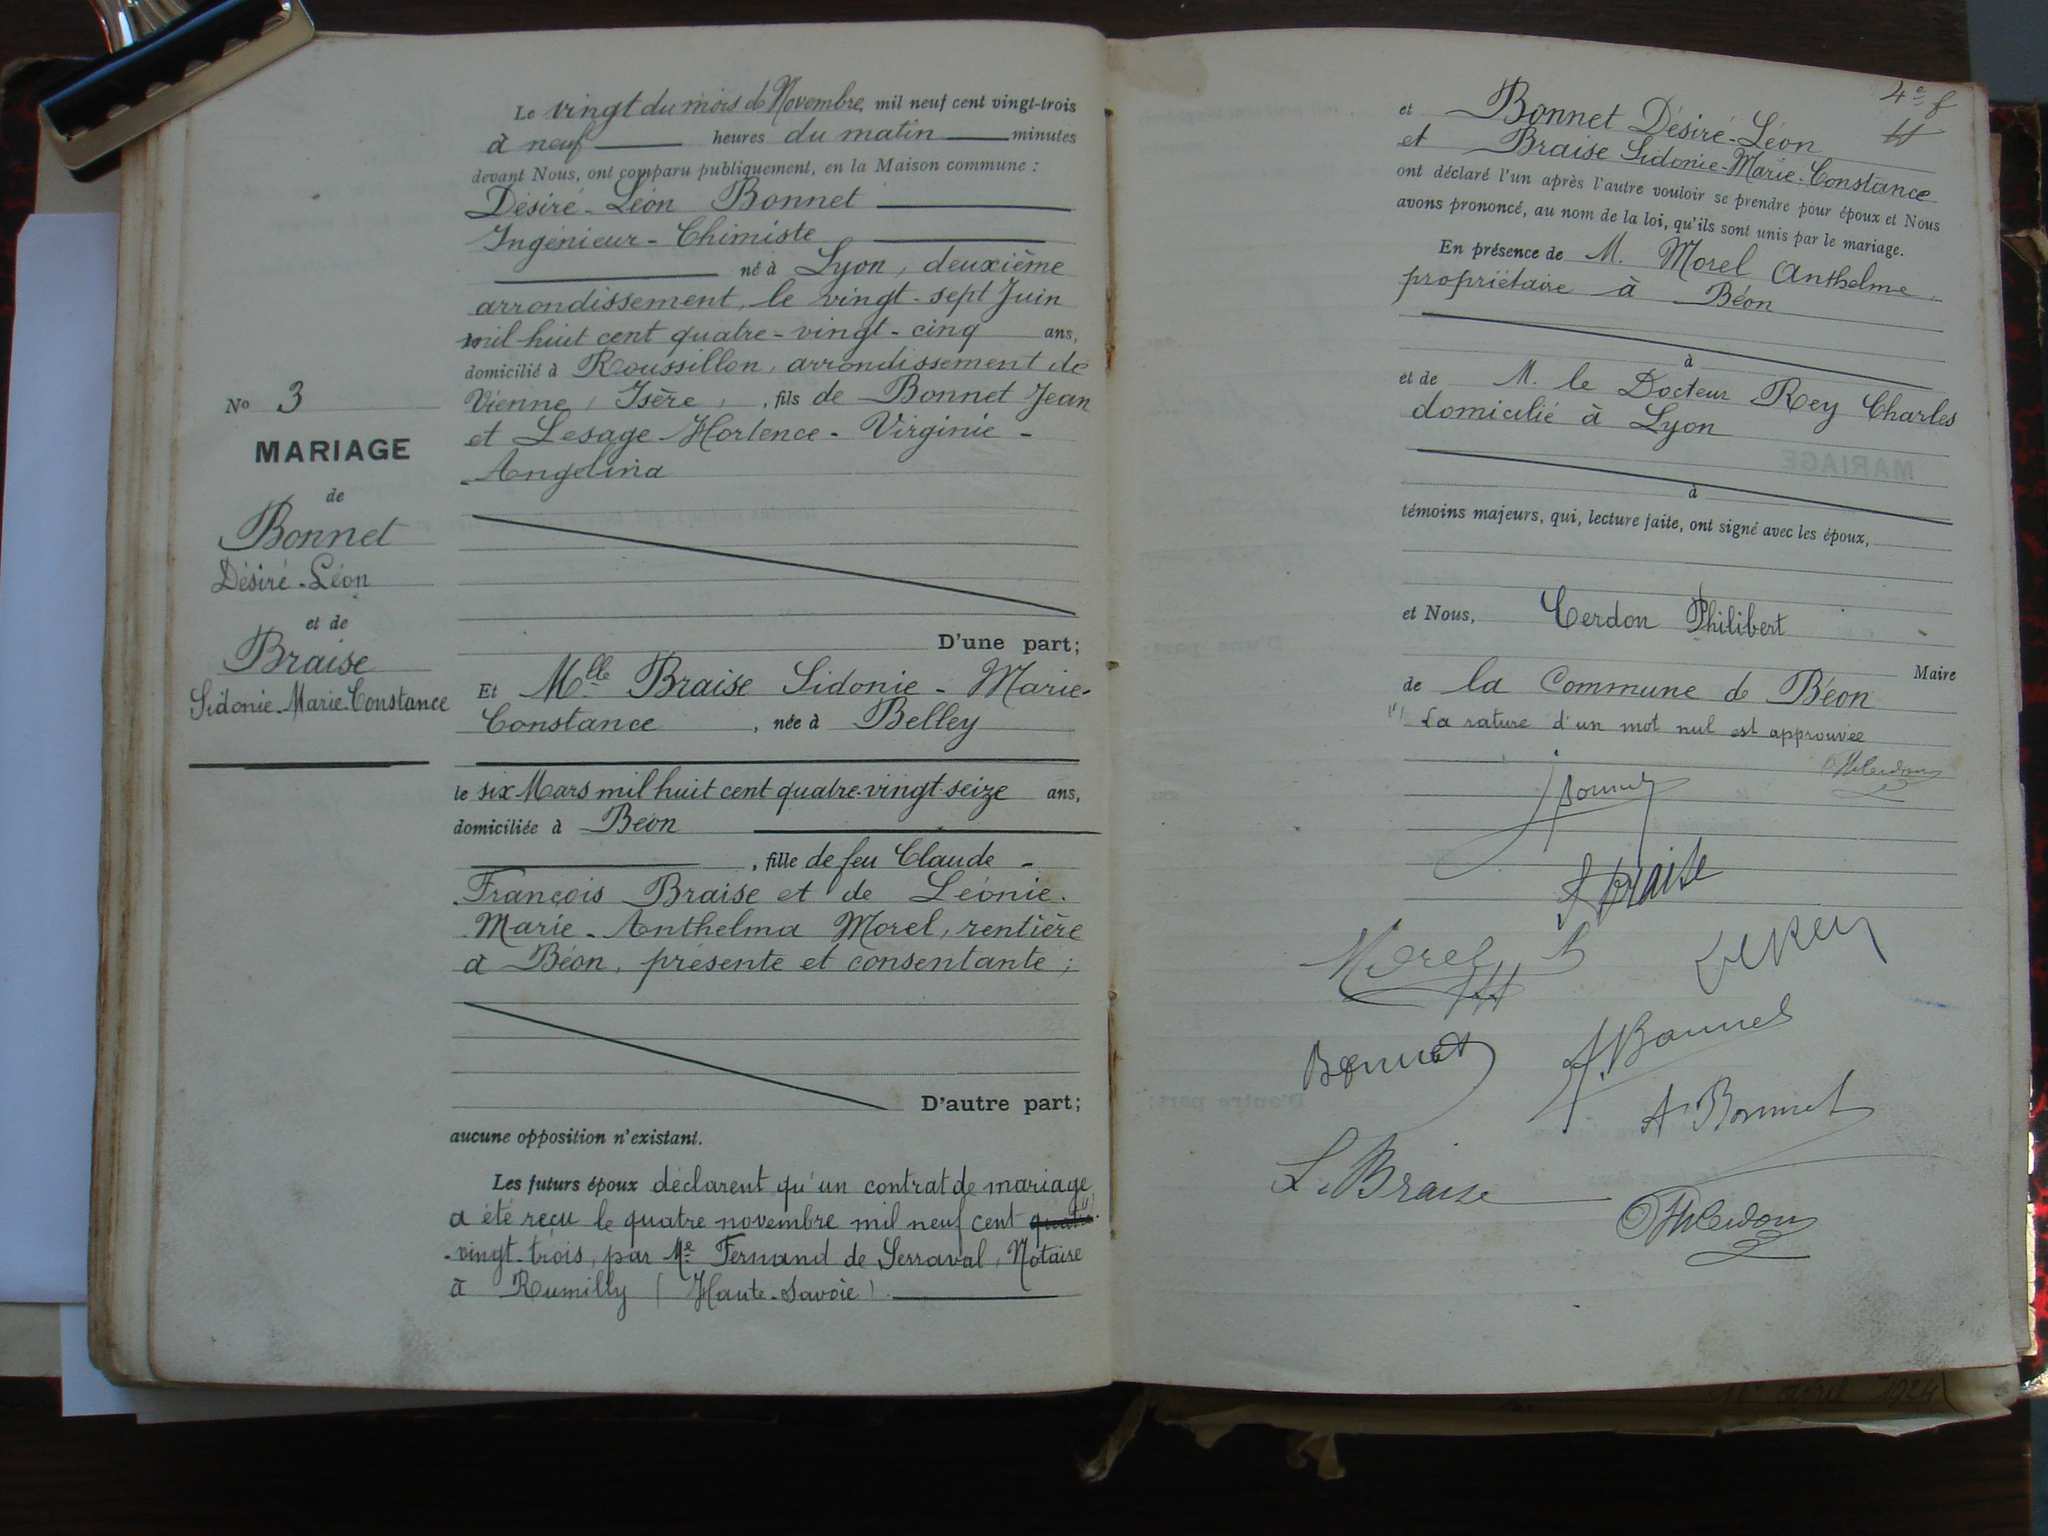 No 3
MARIAGE
de
Bonnet
Désiré-Léon
et de
Braise
Sidonie-Marie-Constance
Le vingt du mois de Novembre, mil neuf cent vingt-trois
à neuf heures du matin minutes
devant Nous, ont comparu publiquement, en la Maison commune :
Désiré-Léon Bonnet
Ingénieur-Chimiste
né à Lyon, deuxième
arrondissement, le vingt-sept Juin
mil huit cent quatre-vingt-cinq ans,
domicilié à Roussillon, arrondissement de
Vienne (Isère), fils de Bonnet Jean
et Lesage Hortence-Virginie-
Angelina
D'une part;
Et Mlle Braise Sidonie-Marie-
Constance, née à Belley
le six Mars mil huit cent quatre-vingt-seize ans,
domiciliée à Béon
, fille de feu Claude-
François Braise et de Léonie-
Marie-Anthelma Morel, rentière
à Béon, présente et consentante;
D'autre part;
aucune opposition n'existant.
Les futurs époux déclarent qu'un contrat de mariage
a été reçu le quatre novembre mil neuf cent (1)
-vingt-trois, par Me Fernand de Serraval, Notaire
à Rumilly (Haute-Savoie).
4e f
et Bonnet Désiré-Léon
et Braise Sidonie-Marie-Constance
ont déclaré l'un après l'autre vouloir se prendre pour époux et Nous
avons prononcé, au nom de la loi, qu'ils sont unis par le mariage.
En présence de M. Morel Anthelme,
propriétaire à Béon
à
et de M. le Docteur Rey Charles
domicilié à Lyon
à
témoins majeurs, qui, lecture faite, ont signé avec les époux,
et Nous, Cerdon Philibert
Maire
de la Commune de Béon
(1) La rature d'un mot nul est approuvée
PhCerdon
Bonnet
S Braise
Morel
Rey
Bonnet
J. Bonnet
A. Bonnet
L. Braise
PhCerdon